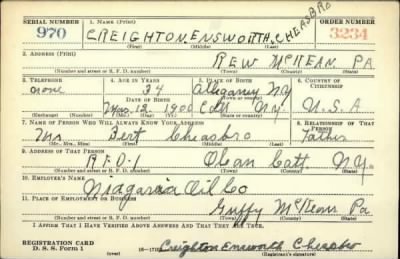 SERIAL NUMBER 1. NAME (Print) ORDER NUMBER
970 CREIGHTON ENSWORTH CHEASBRO 3234
(First) (Middle) (Last)
2. ADDRESS (Print)
REW McKEAN PA
(Number and street or R. F. D. number) (Town) (County) (State)
3. TELEPHONE 4. AGE IN YEARS 5. PLACE OF BIRTH 6. COUNTRY OF CITIZENSHIP
none 34 Allegany NY
DATE OF BIRTH
Mar 12 Catt N.Y. U.S.A
(Exchange) (Number) (Mo.) (Day) (Yr.) (Town) (County) (State)
7. NAME OF PERSON WHO WILL ALWAYS KNOW YOUR ADDRESS 8. RELATIONSHIP OF THAT PERSON
Mr Bert Cheasbro Father
(Mr., Mrs., Miss) (First) (Middle) (Last)
9. ADDRESS OF THAT PERSON
R.F.D-1 Olean Catt N.Y.
(Number and street or R. F. D. number) (Town) (County) (State)
10. EMPLOYER'S NAME
Niagara Oil Co
11. PLACE OF EMPLOYMENT OR BUSINESS
Guffy McKean Pa
(Number and street or R. F. D. number) (Town) (County) (State)
I AFFIRM THAT I HAVE VERIFIED ABOVE ANSWERS AND THAT THEY ARE TRUE.
REGISTRATION CARD
D. S. S. Form 1 16— Creighton Ensworth Cheasbro
(Registrant's signature)